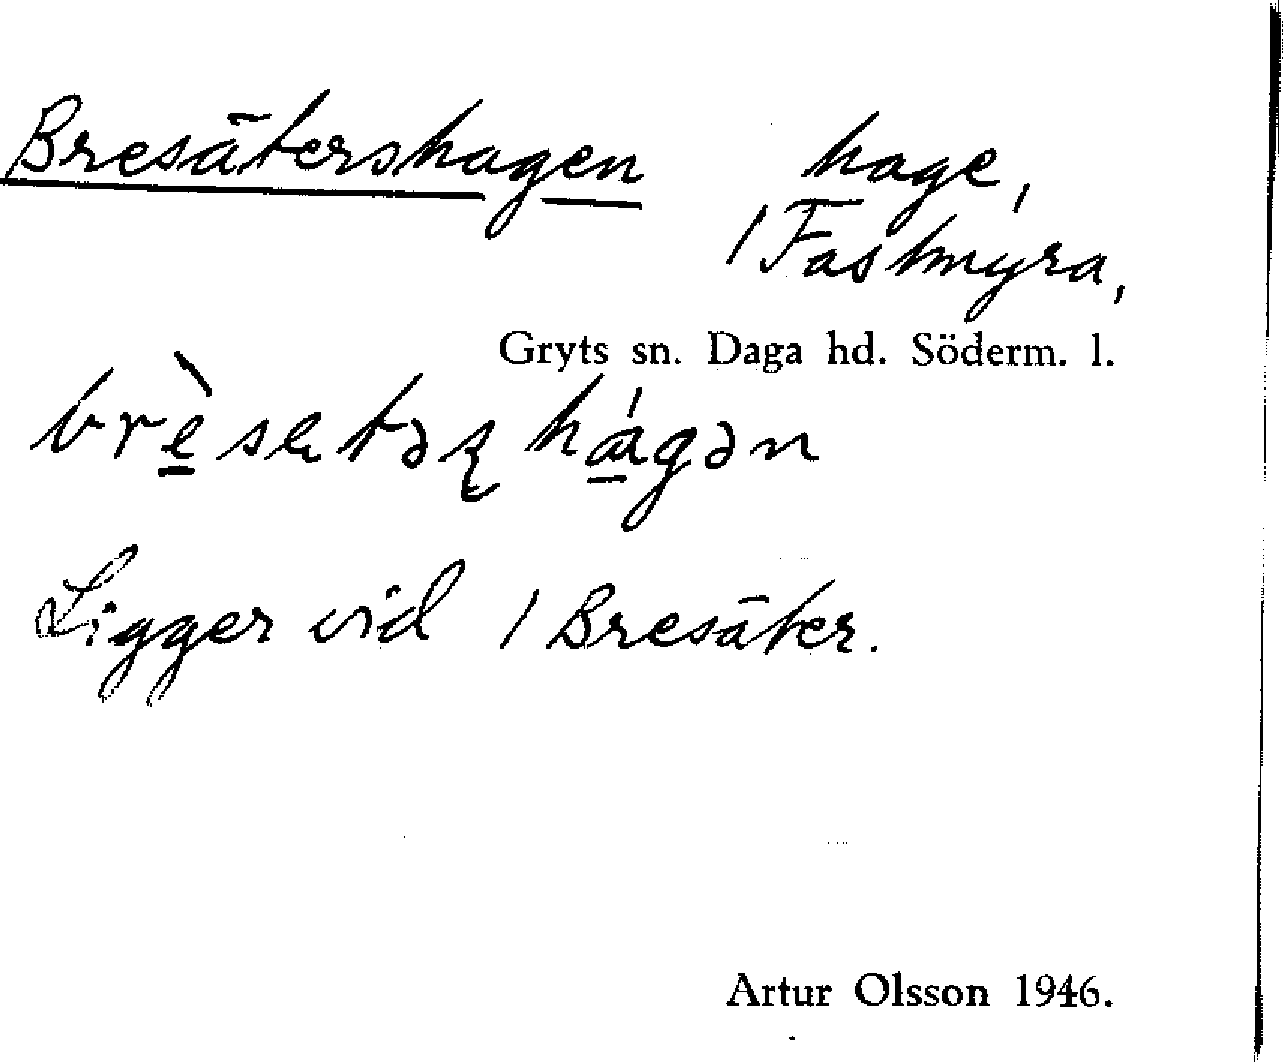 Bresätershagen hage,
/ Fastmyra,
Gryts sn. Daga hd. Söderm. l.
Ligger vid / Bresäter.
Artur Olsson 1946.